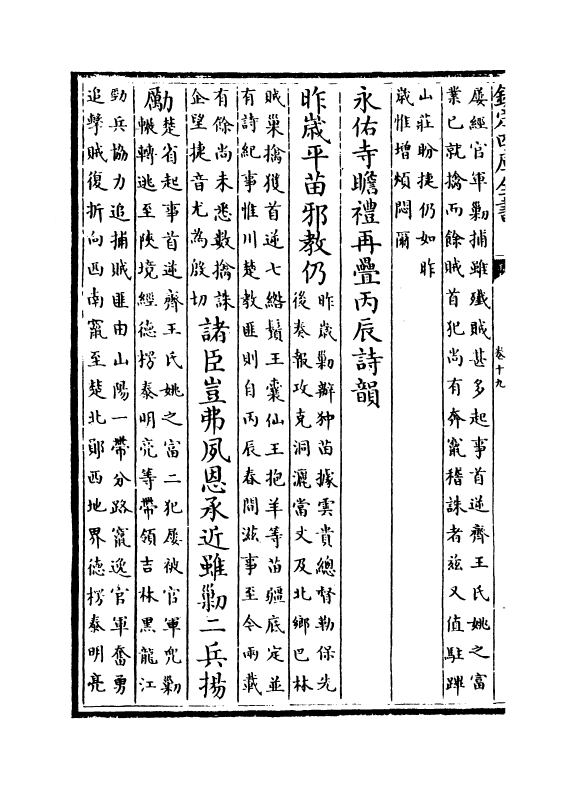 欽定四庫全書
卷十九
屢經官軍勦捕雖殲賊甚多起事首逆齊王氏姚之富
業已就擒而餘賊首犯尚有奔竄稽誅者茲又值駐蹕
山莊盼捷仍如昨
歲惟增煩悶爾
永佑寺瞻禮再疊丙辰詩韻
昨嵗平苗邪教仍
昨嵗勦辦狆苗據雲貴總督勒保先
後奏報攻克洞灑當丈及北鄉巴林
賊巢擒獲首逆七綹鬚王囊仙王抱羊等苗疆底定並
有詩紀事惟川楚教匪則自丙辰春間滋事至今兩載
有餘尚未悉數擒誅
企望捷音尤為殷切
諸臣豈弗夙恩承近雖勦二兵揚
勵
楚省起事首逆齊王氏姚之富二犯屢被官軍兜勦
輾轉逃至陜境經德楞泰明亮等帶領吉林黑龍江
勁兵協力追捕賊匪由山陽一帶分路竄逸官軍奮勇
追擊賊復折向西南竄至楚北鄖西地界德楞泰明亮